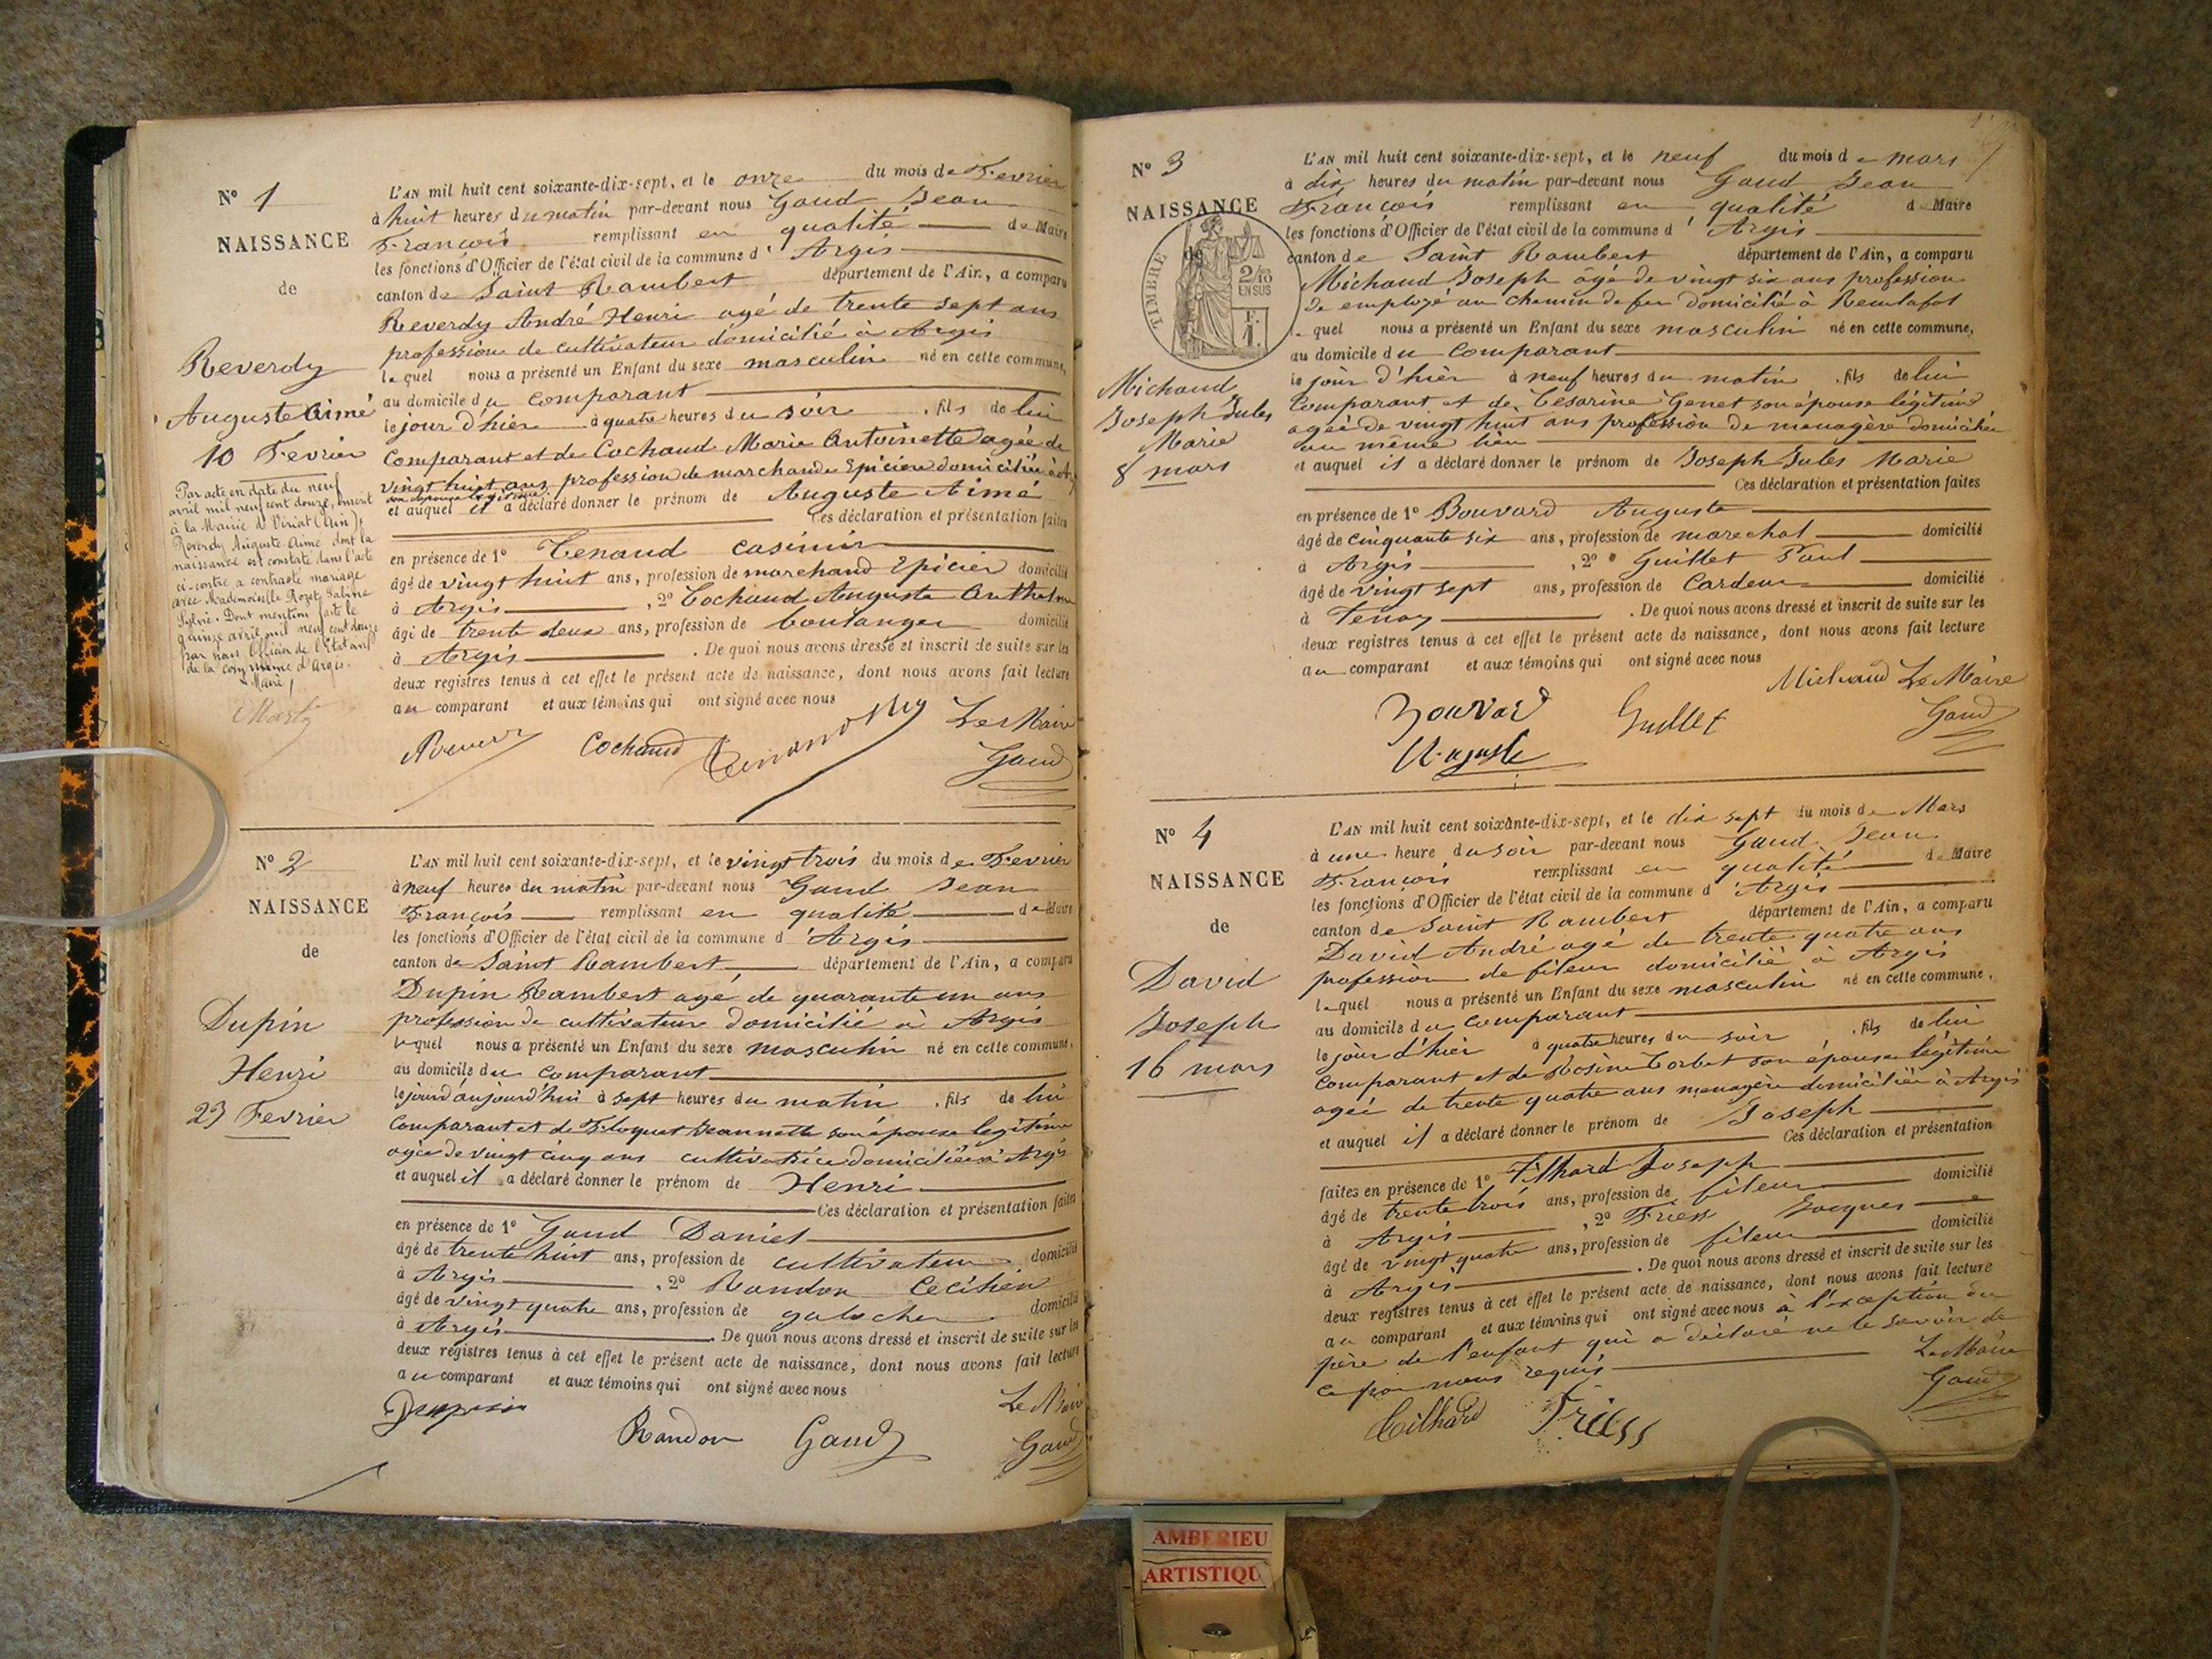 N° 1
NAISSANCE
de
Reverdy
Auguste Aimé
10 Fevrier
Par acte en date du neuf
avril mil neuf cent douze, inscrit
à la Mairie de Viriat (Ain),
Reverdy Auguste Aimé dont la
naissance est constatée dans l'acte
ci-contre a contracté mariage
avec Mademoiselle Rozet Saline
Sylvie. Dont mention faite le
quinze avril mil neuf cent douze
par nous Officier de l'Etat civil
de la commune d'Argis.
Maire
L'AN mil huit cent soixante-dix-sept, et le onze du mois de Fevrier
à huit heures du matin par-devant nous Gaud Jean
François remplissant en qualité de Maire
les fonctions d'Officier de l'état civil de la commune d'Argis
canton de Saint Rambert département de l'Ain, a comparu
Reverdy André Henri agé de trente sept ans
profession de cultivateur domicilié à Argis
lequel nous a présenté un Enfant du sexe masculin né en cette commune,
au domicile du comparant
le jour d'hier à quatre heures du soir , fils de lui
comparant et de Cochaud Marie Antoinette agée de
vingt huit ans profession de marchande Epiciere domiciliée à A
son épouse legitime
et auquel il a déclaré donner le prénom de Auguste Aimé
Ces déclaration et présentation faites
en présence de 1° Tenaud casimir
âgé de vingt huit ans, profession de marchand Epicier domicilié
à Argis , 2° Cochaud Auguste Anthelme
âgé de trente deux ans, profession de boulanger domicilié
à Argis . De quoi nous avons dressé et inscrit de suite sur les
deux registres tenus à cet effet le présent acte de naissance, dont nous avons fait lecture
au comparant et aux témoins qui ont signé avec nous
Cochaud Le Maire
Gaud
N° 2
NAISSANCE
de
Dupin
Henri
23 Fevrier
L'AN mil huit cent soixante-dix-sept, et le vingt trois du mois de Fevrier
à neuf heures du matin par-devant nous Gaud Jean
François remplissant en qualité de Maire
les fonctions d'Officier de l'état civil de la commune d'Argis
canton de Saint Rambert département de l'Ain, a comparu
Dupin Rambert agé de quarante un ans
profession de cultivateur domicilié à Argis
lequel nous a présenté un Enfant du sexe masculin né en cette commune,
au domicile du comparant
le jour d'aujourd'hui à sept heures du matin , fils de lui
comparant et de Floquet Jeannette son épouse legitime
agée de vingt cinq ans cultivatrice domiciliée à Argis
et auquel il a déclaré donner le prénom de Henri
Ces déclaration et présentation faites
en présence de 1° Gaud Daniel
âgé de trente huit ans, profession de cultivateur domicilié
à Argis , 2° Randon Cecilien
âgé de vingt quatre ans, profession de galocher domicilié
à Argis . De quoi nous avons dressé et inscrit de suite sur les
deux registres tenus à cet effet le présent acte de naissance, dont nous avons fait lecture
au comparant et aux témoins qui ont signé avec nous
Dupin Randon Gaud Le Maire
Gaud
N° 3
NAISSANCE
de
TIMBRE
2/10
EN SUS
F.
1.
Michaud
Joseph Jules
Marie
8 mars
L'AN mil huit cent soixante-dix-sept, et le neuf du mois de mars
à dix heures du matin par-devant nous Gaud Jean
François remplissant en qualité de Maire
les fonctions d'Officier de l'état civil de la commune d'Argis
canton de Saint Rambert département de l'Ain, a comparu
Michaud Joseph âgé de vingt six ans profession
de employé au chemin de fer domicilié à Reculafol
lequel nous a présenté un Enfant du sexe masculin né en cette commune,
au domicile du comparant
le jour d'hier à neuf heures du matin , fils de lui
comparant et de Cesarine Genet son épouse légitime
agée de vingt huit ans profession de menagère domiciliée
au même lieu
et auquel il a déclaré donner le prénom de Joseph Jules Marie
Ces déclaration et présentation faites
en présence de 1° Bouvard Auguste
âgé de cinquante six ans, profession de marechal domicilié
à Argis , 2° Guillet Paul
âgé de vingt sept ans, profession de Cardeur domicilié
à Tenay . De quoi nous avons dressé et inscrit de suite sur les
deux registres tenus à cet effet le présent acte de naissance, dont nous avons fait lecture
au comparant et aux témoins qui ont signé avec nous
Michaud Le Maire
Bouvard Guillet Gaud
Auguste
N° 4
NAISSANCE
de
David
Joseph
16 mars
L'AN mil huit cent soixante-dix-sept, et le dix sept du mois de Mars
à une heure du soir par-devant nous Gaud Jean
François remplissant en qualité de Maire
les fonctions d'Officier de l'état civil de la commune d'Argis
canton de Saint Rambert département de l'Ain, a comparu
David André agé de trente quatre ans
profession de fileur domicilié à Argis
lequel nous a présenté un Enfant du sexe masculin né en cette commune,
au domicile du comparant
le jour d'hier à quatre heures du soir , fils de lui
comparant et de Rosine Corbet son épouse légitime
agée de trente quatre ans menagère domiciliée à Argis
et auquel il a déclaré donner le prénom de Joseph
Ces déclaration et présentation
faites en présence de 1° Tilhard Joseph
âgé de trente trois ans, profession de fileur domicilié
à Argis , 2° Friess Jacques
âgé de vingt quatre ans, profession de fileur domicilié
à Argis . De quoi nous avons dressé et inscrit de suite sur les
deux registres tenus à cet effet le présent acte de naissance, dont nous avons fait lecture
au comparant et aux témoins qui ont signé avec nous à l'exception du
père de l'enfant qui a déclaré ne le savoir de
ce par nous requis Le Maire
Tilhard Friess Gaud
AMBERIEU
ARTISTIQU